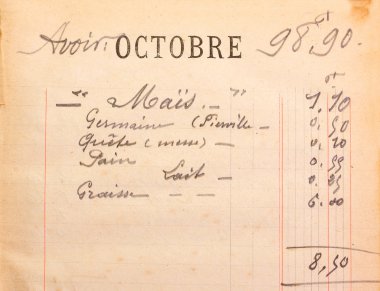 Avoir: OCTOBRE 98.90
— " Maïs. — "
Germaine (Pierville — 0.50
Quête (messe) — 0.20
Pain
Lait —
Graisse — 6.00
8,50